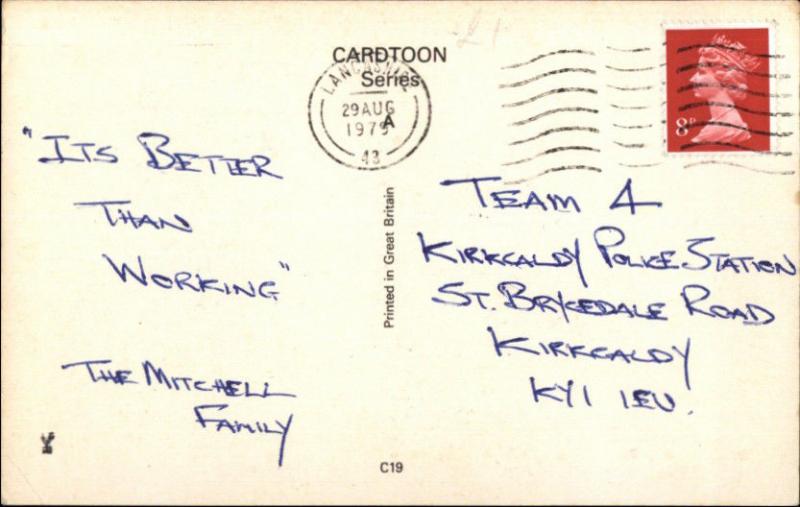 CARDTOON
Series
LANCASHIRE
29 AUG
A
1979
43
8P
"ITS BETTER
THAN
WORKING"
THE MITCHELL
FAMILY
Printed in Great Britain
TEAM 4
KIRKCALDY POLICE STATION
ST. BRYCEDALE ROAD
KIRKCALDY
KY1 1EU.
C19